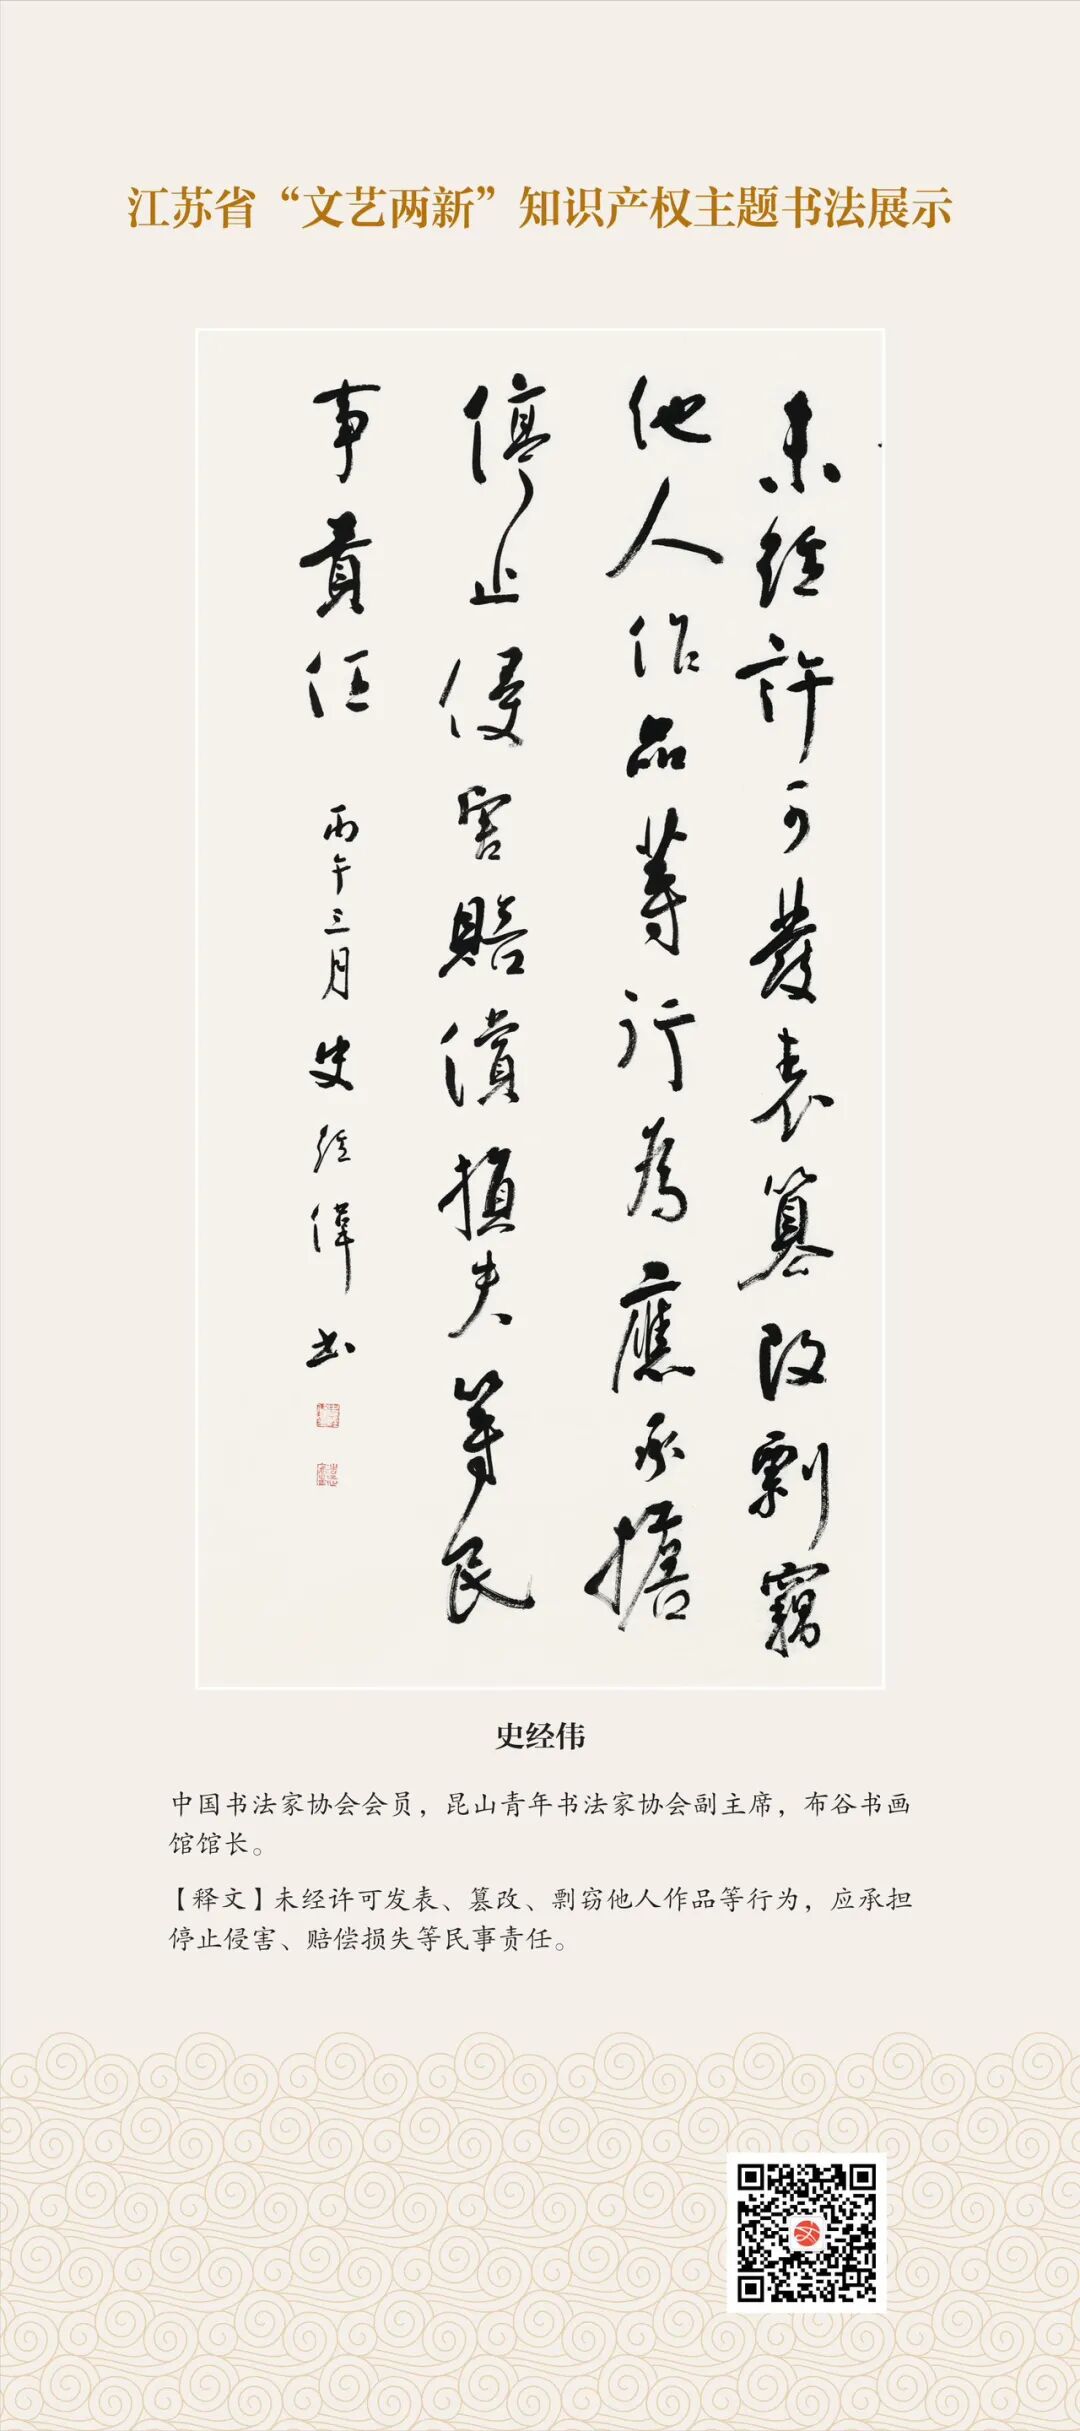 江苏省“文艺两新”知识产权主题书法展示
未經許可發表篡改剽竊
他人作品等行為應承擔
停止侵害賠償損失等民
事責任
丙午三月史經偉书
史经伟
中国书法家协会会员，昆山青年书法家协会副主席，布谷书画
馆馆长。
【释文】未经许可发表、篡改、剽窃他人作品等行为，应承担
停止侵害、赔偿损失等民事责任。